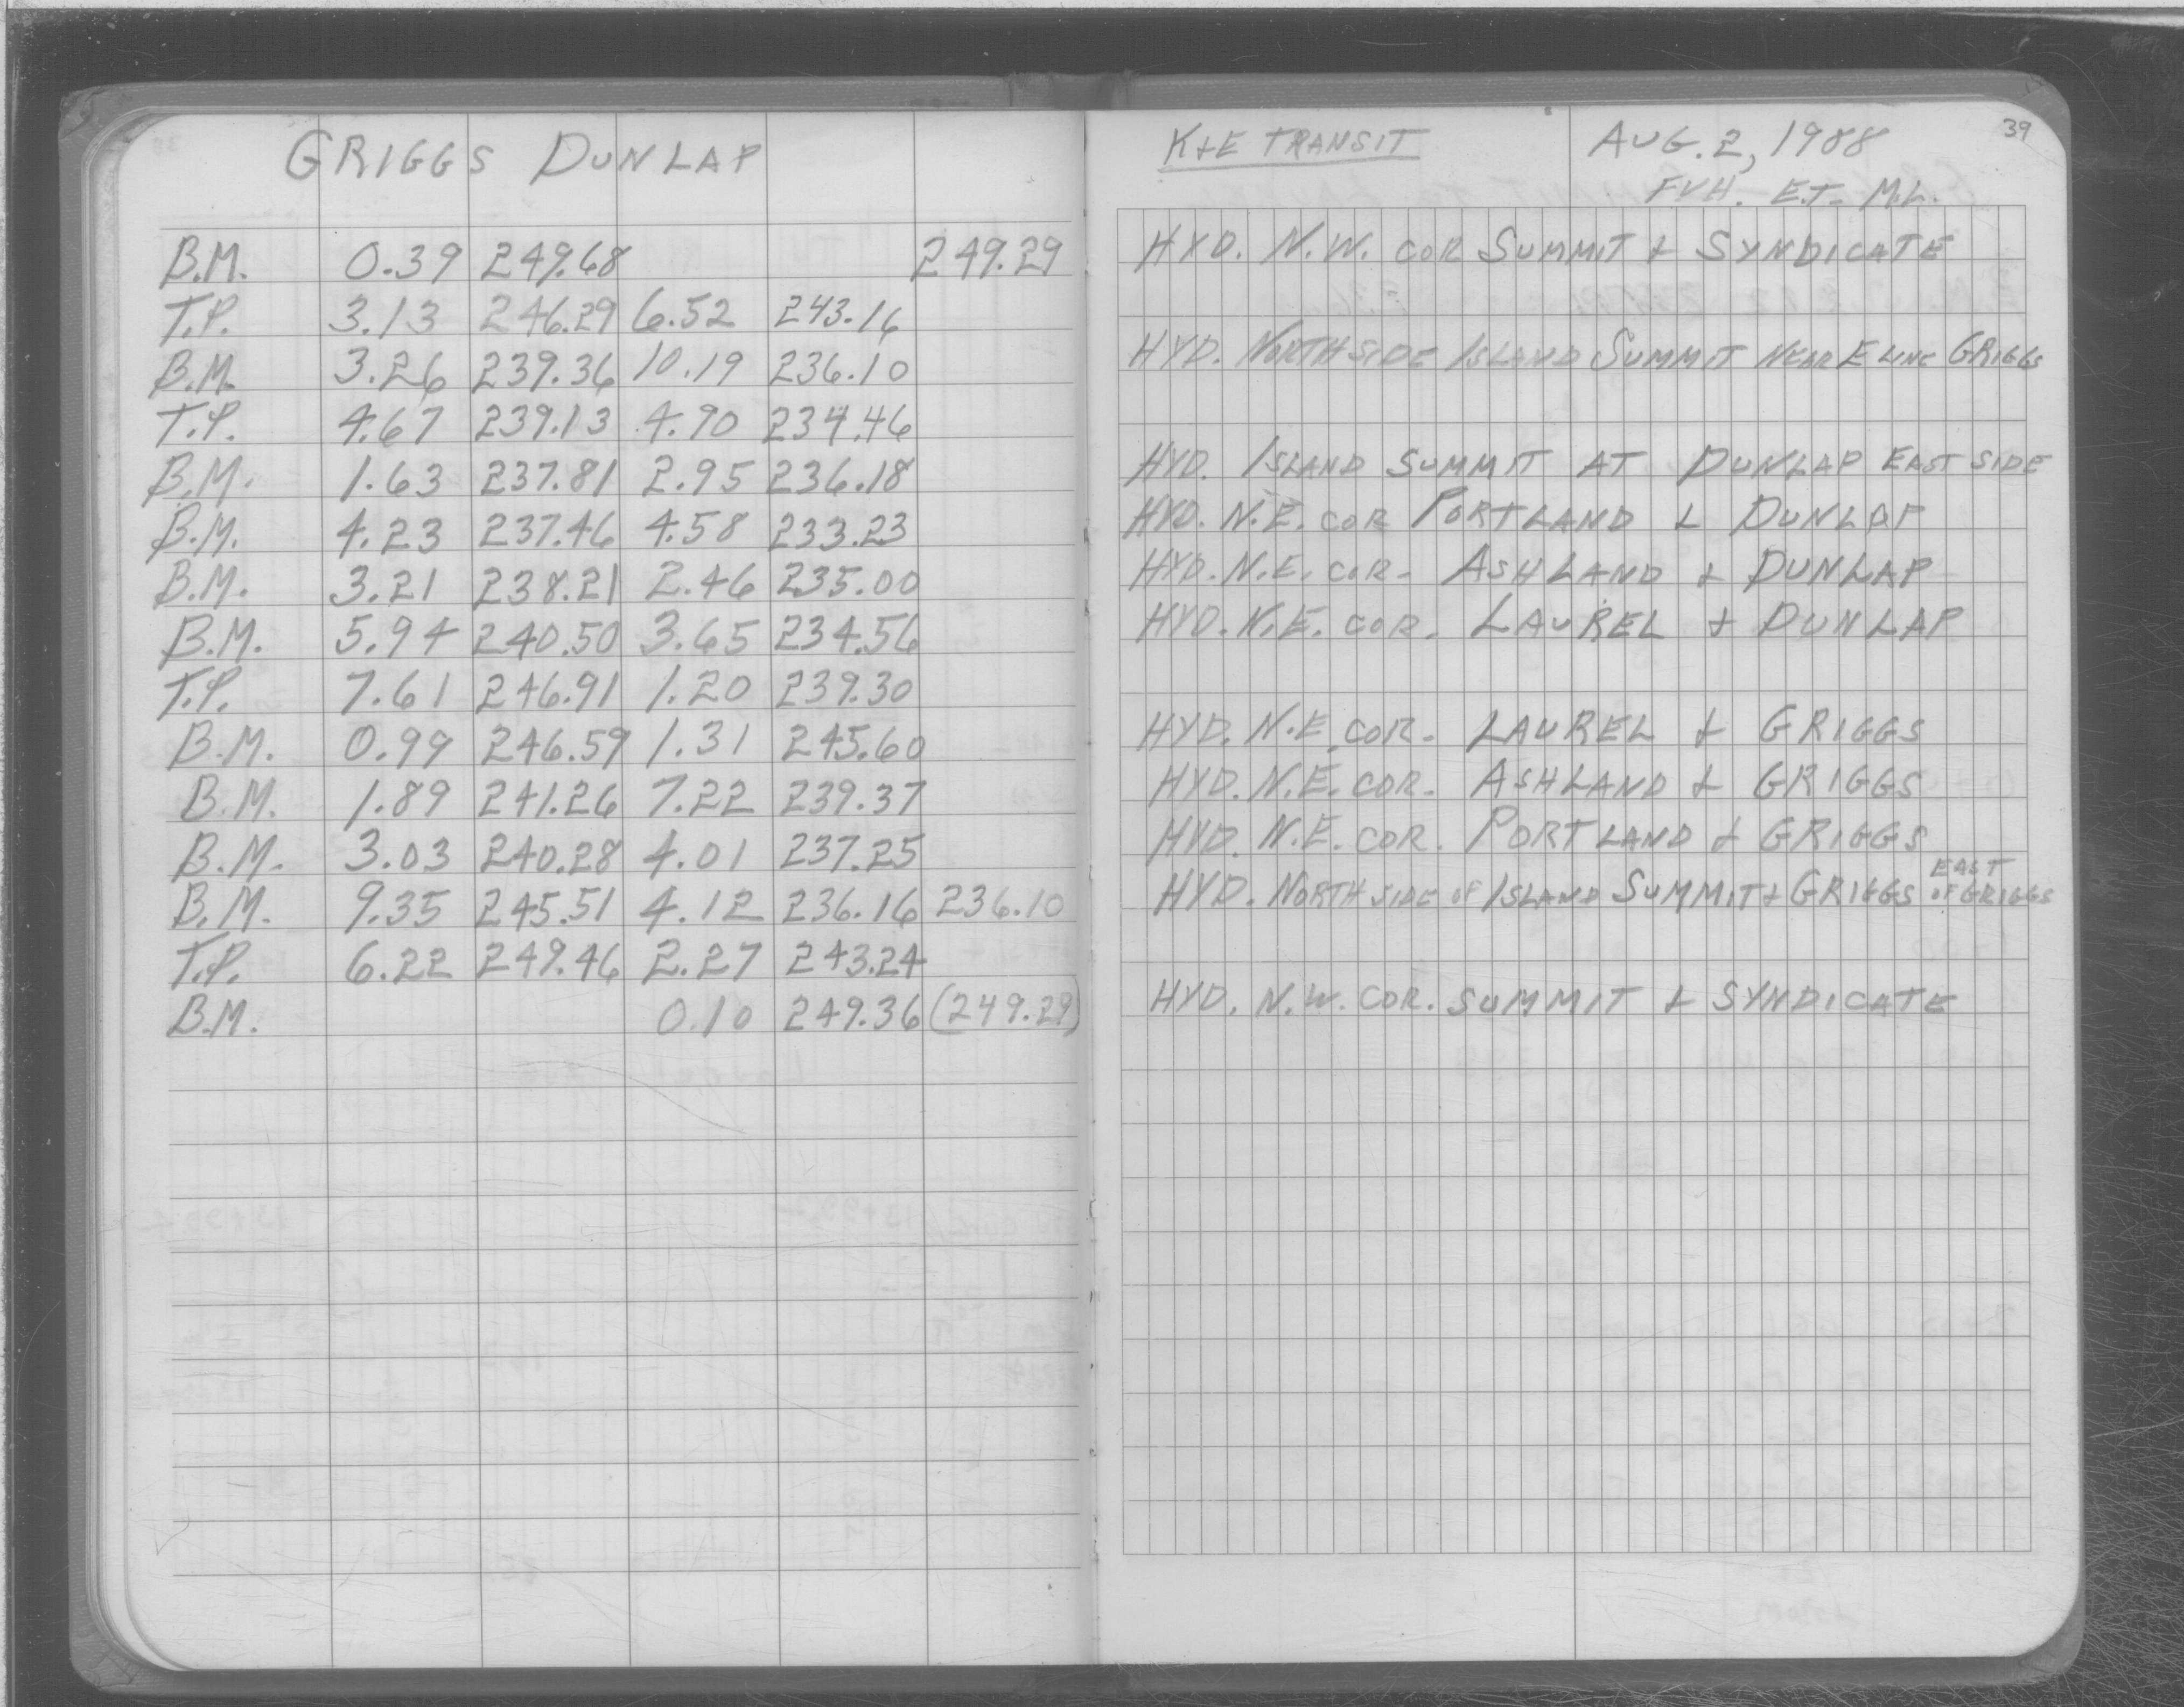 GRIGGS DUNLAP
B.M. 0.39 249.68 249.29
T.P. 3.13 246.29 6.52 243.16
B.M. 3.26 239.36 10.19 236.10
T.P. 4.67 239.13 4.90 234.46
B.M. 1.63 237.81 2.95 236.18
B.M. 4.23 237.46 4.58 233.23
B.M. 3.21 238.21 2.46 235.00
B.M. 5.94 240.50 3.65 234.56
T.P. 7.61 246.91 1.20 239.30
B.M. 0.99 246.59 1.31 245.60
B.M. 1.89 241.26 7.22 239.37
B.M. 3.03 240.28 4.01 237.25
B.M. 9.35 245.51 4.12 236.16 236.10
T.P. 6.22 249.46 2.27 243.24
B.M. 0.10 249.36 (249.29)
K+E TRANSIT AUG. 2, 1988 39
FVH. E.T. M.L.
HYD. N.W. COR SUMMIT & SYNDICATE
HYD. NORTH SIDE ISLAND SUMMIT NEAR E LINE GRIGGS
HYD. ISLAND SUMMIT AT DUNLAP EAST SIDE
HYD. N.E. COR PORTLAND & DUNLAP
HYD. N.E. COR. ASHLAND & DUNLAP
HYD. N.E. COR. LAUREL & DUNLAP
HYD. N.E. COR. LAUREL & GRIGGS
HYD. N.E. COR. ASHLAND & GRIGGS
HYD. N.E. COR. PORTLAND & GRIGGS
HYD. NORTH SIDE OF ISLAND SUMMIT & GRIGGS EAST OF GRIGGS
HYD. N.W. COR. SUMMIT & SYNDICATE